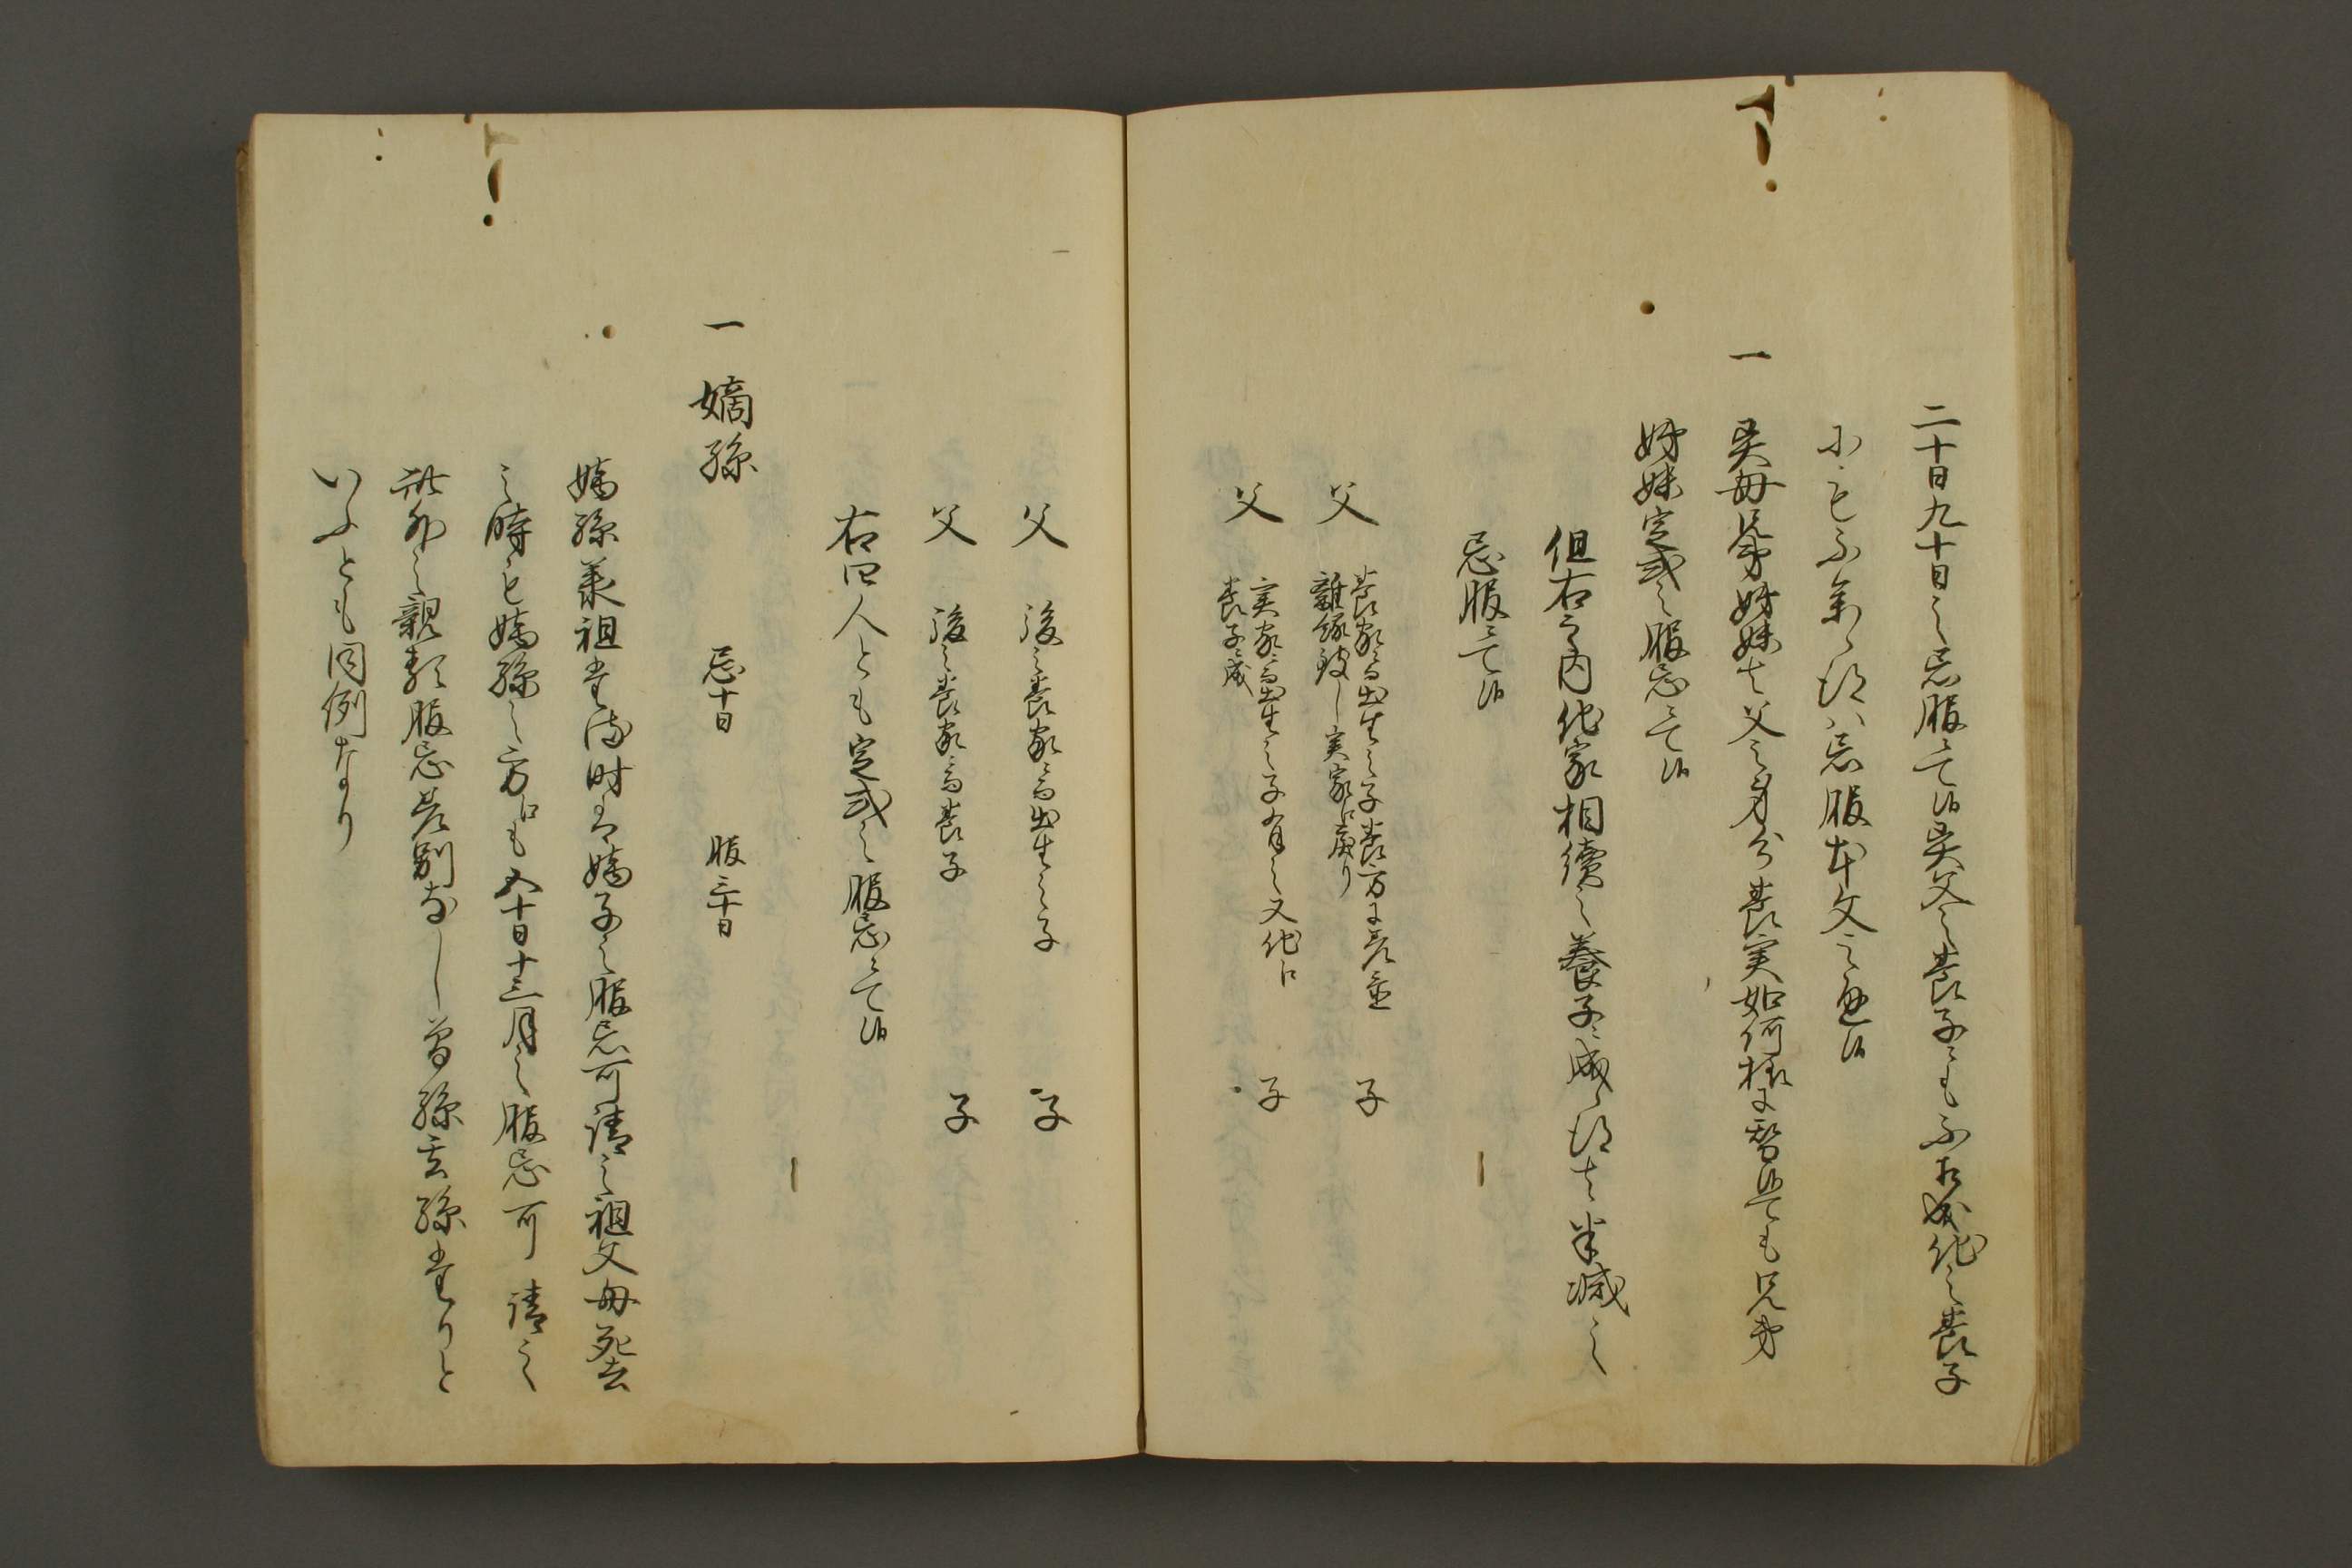 二十日九十日之忌服ニて候異父之養子ニも不相成他之養子
ニも不参候ハ忌服本文之通候
一　異母兄弟姉妹ハ父之身分養実如何様ニ替候ても兄弟
姉妹定式之服忌ニて候
但右之内他家相續之養子ニ成候ハ半減之
忌服ニて候
父　養家ニ而出生之子養方ニ差置　子
離縁致し実家江戻り
父　実家ニ而出生之子有之又他江　子
養子ニ成
父　後之養家ニ而出生之子　子
父　後之養家ニ而養子　子
右四人とも定式之服忌ニて候
一　嫡孫　忌十日　服三十日
嫡孫承祖たる時は嫡子之服忌可請之祖父母死去
之時も嫡孫之方江も五十日十三月之服忌可請之
此外之親類服忌差別なし曾孫玄孫たりと
いふとも同例なり